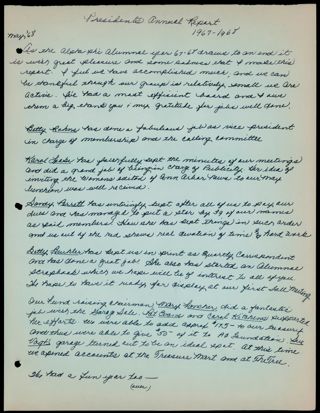 Presidents Annual Report
May '68 1967-1968
As the Alpha phi Alumnae year 67-68 draws to an end it
is with great pleasure and some sadness that I make this
report. I feel we have accomplished much, and we can
be thankful although our group is relatively small we are
active. We had a most efficient board and I owe
them a big thank you & my gratitude for jobs well done.
Betty has done a fabulous job as vice president
in charge of membership and the calling committee
Carol has faithfully kept the minutes of our meetings
and did a great job of being in charge of Publicity. Her idea of
inviting the womens editor of Ann Arbor News to our May
luncheon was well received.
Sandy has untiringly kept after all of us to pay our
dues and has managed to put a star by 29 of our names
as paid members. Now she has kept things in such order
and as is by the red shows real devotion of time & hard work
Betty has kept us in print as Quarterly Correspondent
and has done a great job. She also has started an alumnae
scrapbook which we hope will be of interest to all of you
We hope to have it ready for display at our first fall Meeting
Our fund raising chairman Mary did a fantastic
job with the Garage Sale. and Carol supported
her efforts. We were able to add approx 175- to our treasury
and thus were able to give 50- of it to AO Foundation.
garage turned out to be an ideal spot. At this time
we opened accounts at the Treasure Mart and at The Tree.
We had a fun year too —
(over)